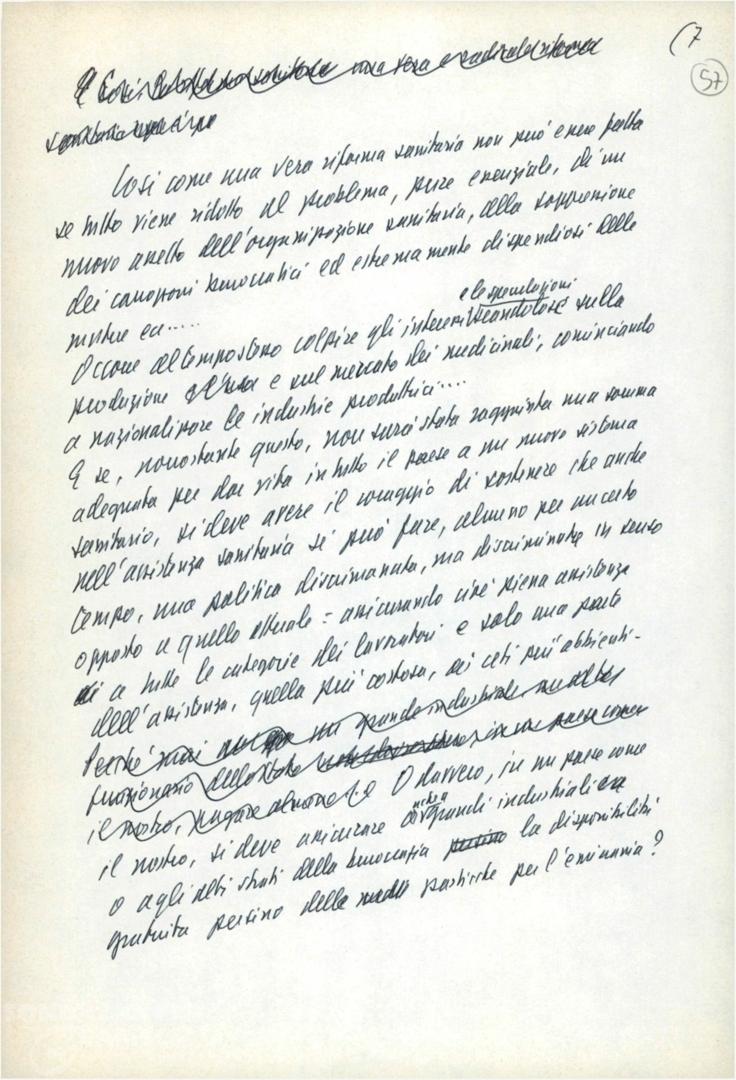 (7
57
una vera e radicale riforma
sanitaria
Così come una vera riforma sanitaria non può essere fatta
se tutto viene ridotto al problema, pure essenziale, di un
nuovo assetto dell'organizzazione sanitaria, della soppressione
dei carrozzoni burocratici ed estremamente dispendiosi delle
mutue ecc....
e le speculazioni
Occorre al tempo stesso colpire gli interessi scandalosi sulla
produzione e sul mercato dei medicinali, cominciando
a nazionalizzare le industrie produttrici....
E se, nonostante questo, non sarà stata raggiunta una somma
adeguata per dar vita in tutto il paese a un nuovo sistema
sanitario, si deve avere il coraggio di sostenere che anche
nell'assistenza sanitaria si può fare, almeno per un certo
tempo, una politica discriminata, ma discriminata in senso
opposto a quello attuale = assicurando cioè piena assistenza
a tutte le categorie dei lavoratori e solo una parte
dell'assistenza, quella più costosa, ai ceti più abbienti-
Perché mai un grande industriale
funzionario dello Stato in un paese come
il nostro, pagare almeno O davvero, in un paese come
il nostro, si deve assicurare grandi industriali
o agli alti strati della burocrazia persino la disponibilità
gratuita persino delle pasticche per l'emicrania?